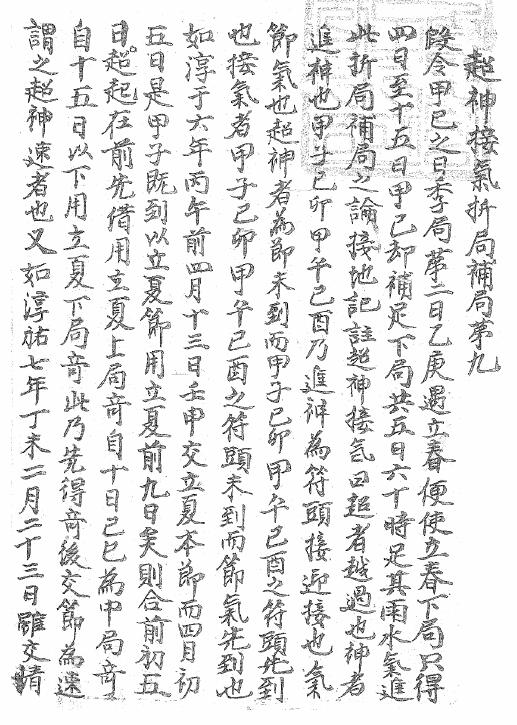 超神接氣折局補局第九
假令甲巳之日季局第二日乙庚遇立春便使立春下局只得
四日至十五日甲己却補足下局共五日六十時足其雨水氣進
此折局補局之論接地記註超神接氣曰超者越過也神者
進神也甲子己卯甲午己酉乃進神為符頭接迎接也氣
節氣也超神者為節未到而甲子己卯甲午己酉之符頭先到
也接氣者甲子己卯甲午己酉之符頭未到而節氣先到也
如淳于六年丙午前四月十三日壬申交立夏本節而四月初
五日是甲子既到以立夏節用立夏前九日矣則合前初五
日起起在前先借用立夏上局竒自十日己巳為中局竒
自十五日以下用立夏下局竒此乃先得竒後交節為速
謂之超神速者也又如淳祐七年丁未二月二十三日雖交晴